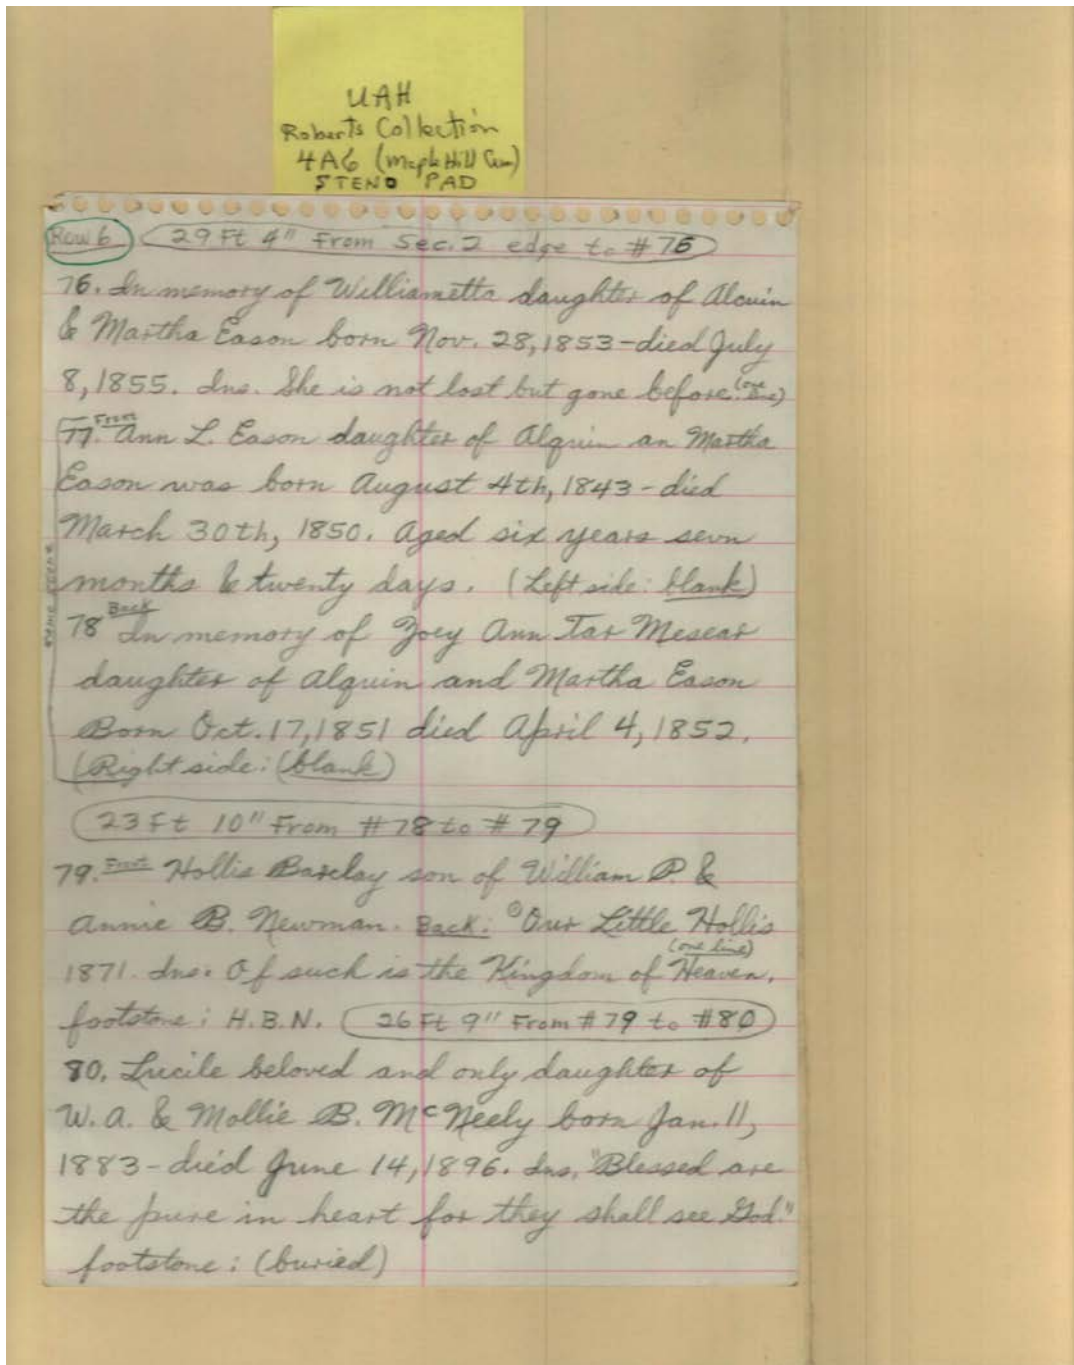 UAH
Roberts Collection
4A6 (Maple Hill Cem)
STENO PAD
Row 6 29 Ft 4" From Sec. 2 edge to #76
76. In memory of Williametta daughter of Alcuin
& Martha Eason born Nov. 28, 1853 - died July
8, 1855. Ins. She is not lost but gone before. (one line)
77. Front Ann L. Eason daughter of Alquin an Martha
Eason was born August 4th, 1843 - died
March 30th, 1850. Aged six years sevn
months & twenty days. (Left side: blank)
same stone
78 Back In memory of Zoey Ann Tar Mesear
daughter of Alquin and Martha Eason
Born Oct. 17, 1851 died April 4, 1852.
(Right side: (blank)
23 Ft 10" From #78 to #79
79. Front Hollis Barclay son of William P. &
Annie B. Newman. Back: "Our Little Hollis
(one line)
1871. Ins. Of such is the Kingdom of Heaven.
footstone: H.B.N. 26 Ft 9" From #79 to #80
80. Lucile beloved and only daughter of
W. A. & Mollie B. McNeely born Jan. 11,
1883 - died June 14, 1896. Ins. "Blessed are
the pure in heart for they shall see God."
footstone: (buried)